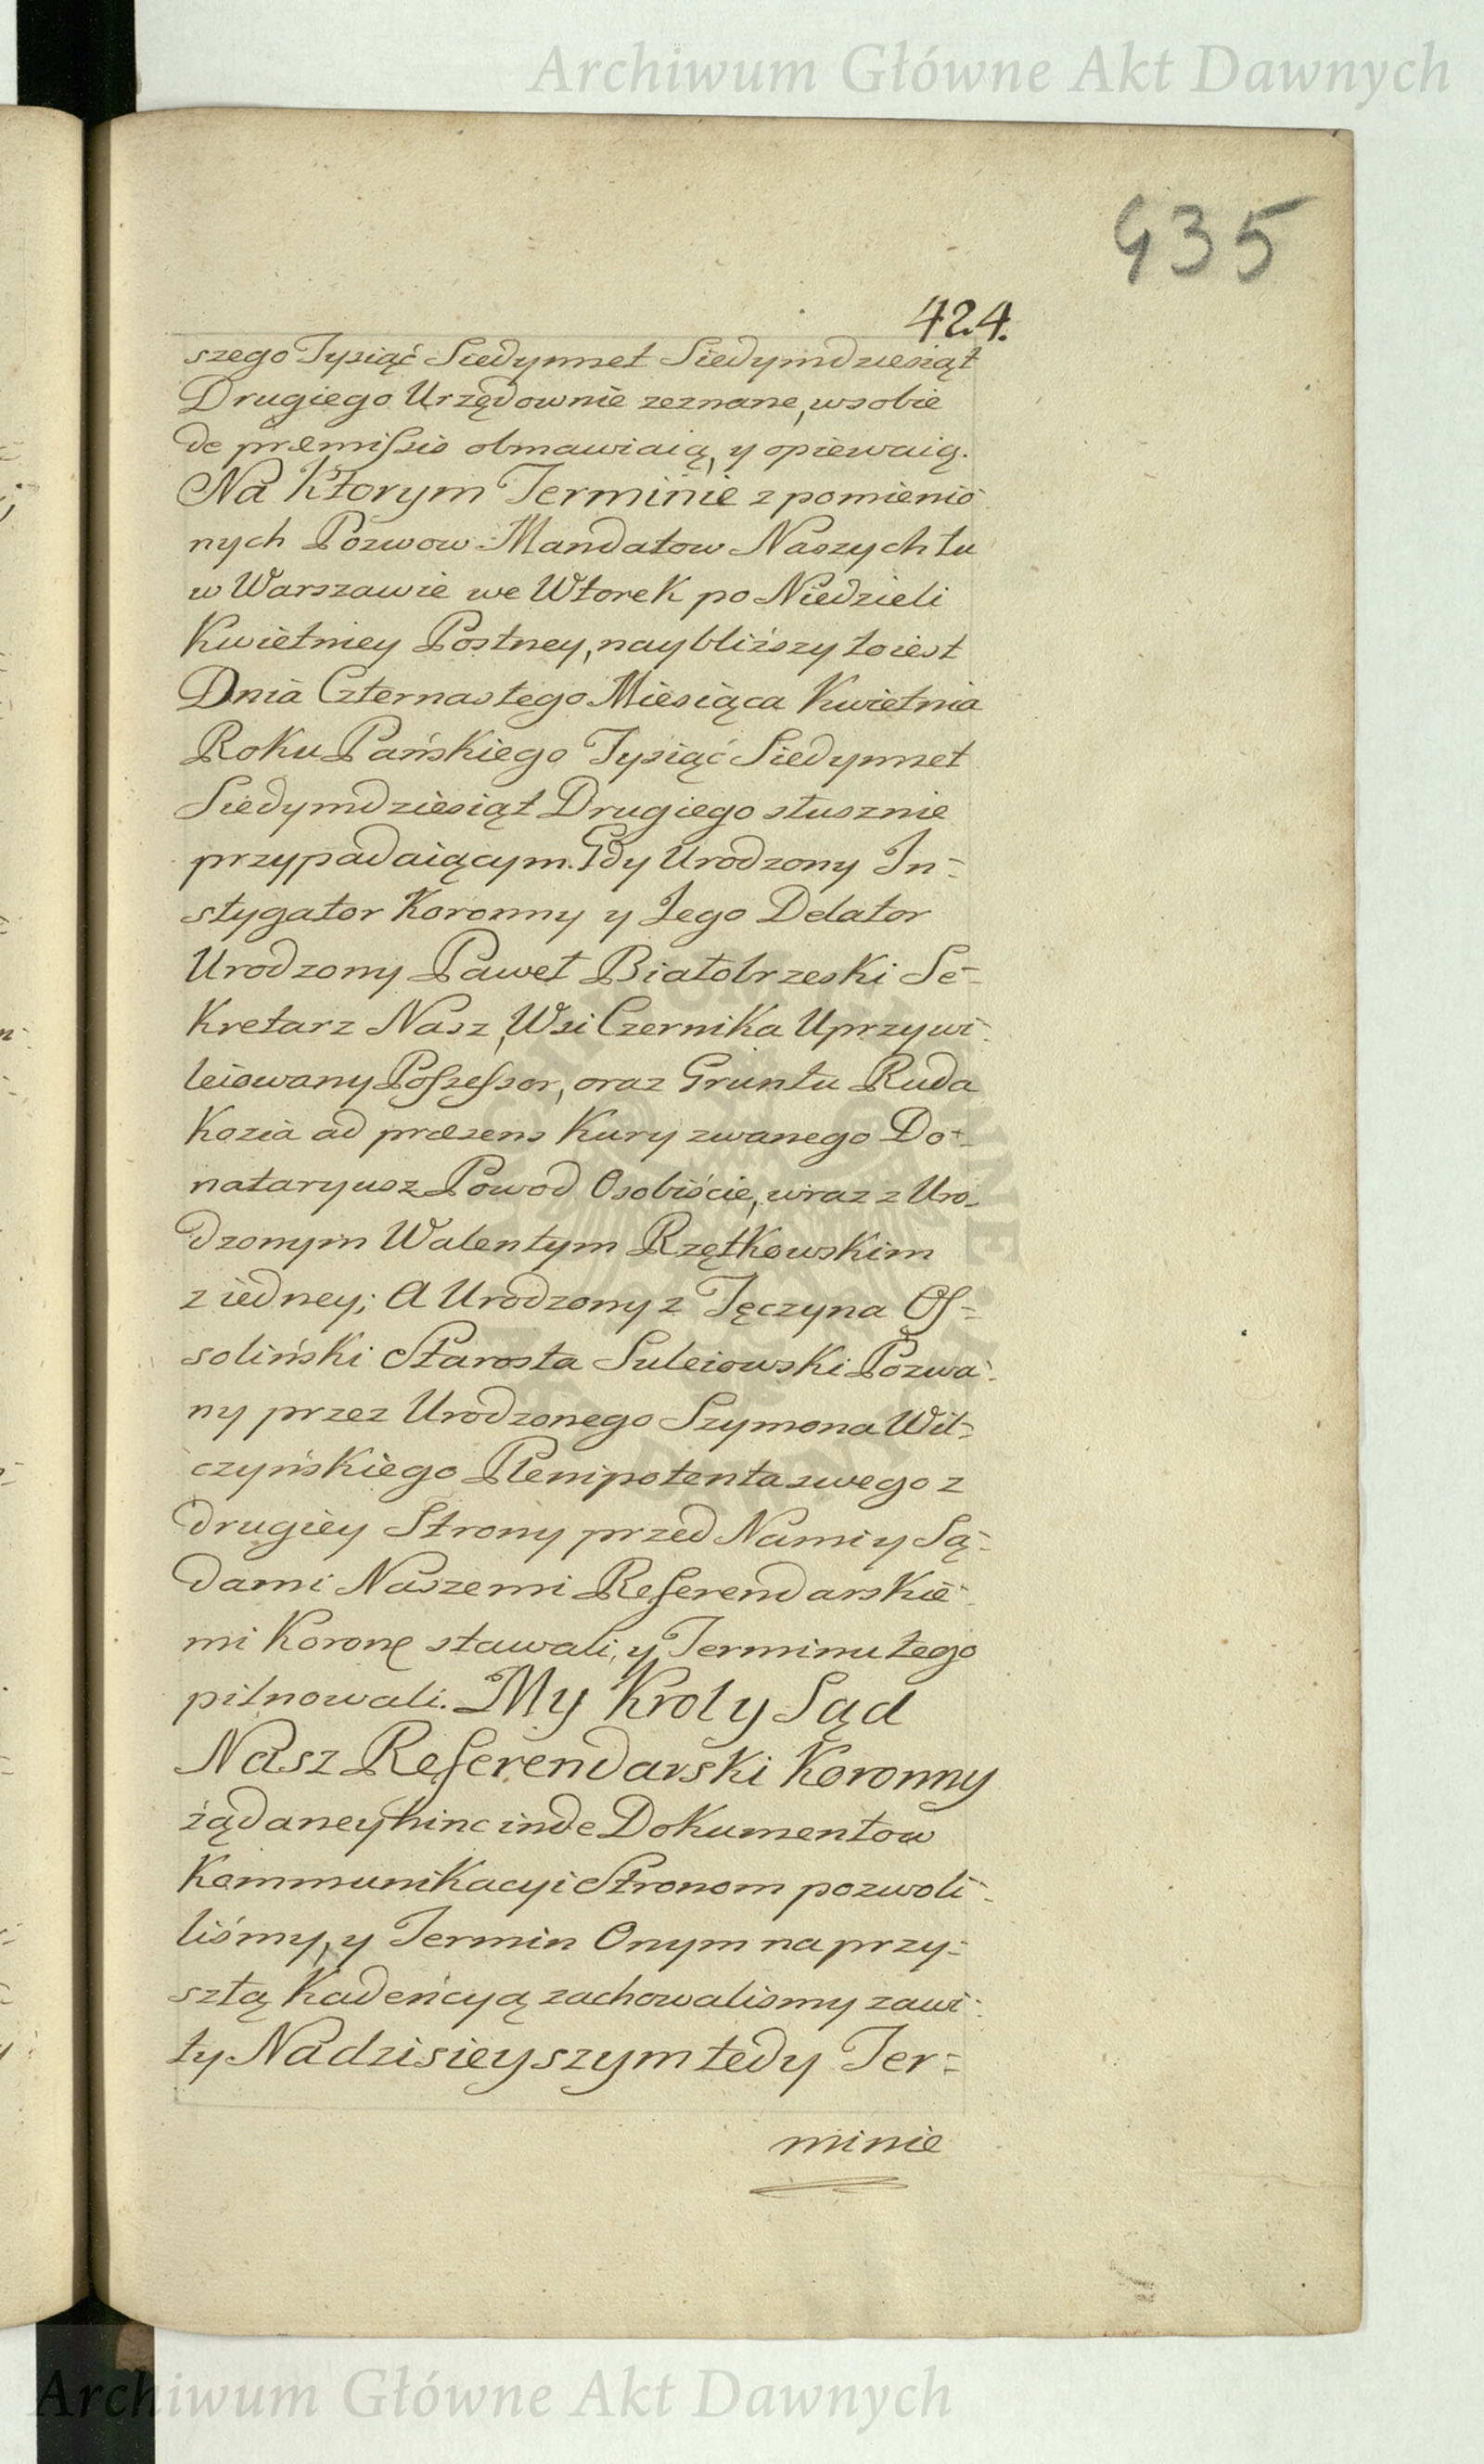 Archiwum Główne Akt Dawnych
435
424.
szego Tysiąć Siedymset Siedymdziesiąt
Drugiego Urzędownie zeznane, w sobie
de præmissis obmawiaią, y opiewaią.
Na Ktorym Terminie z pomienio-
nych Pozwow Mandatow Naszych tu
w Warszawie we Wtorek po Niedzieli
Kwietniey Postney, naybliższy to iest
Dnia Czternastego Miesiąca Kwietnia
Roku Pańskiego Tysiąć Siedymset
Siedymdziesiąt Drugiego słusznie
przypadaiącym. Gdy Urodzony In=
stygator Koronny y Jego Delator
Urodzony Paweł Białobrzeski Se=
kretarz Nasz, Wsi Czernika Uprzywi-
leiowany Possessor, oraz Gruntu Ruda
Kozia ad præsens Kury zwanego Do=
nataryusz Powod Osobiście, wraz z Uro-
dzonym Walentym Rzętkowskim
z iedney; A Urodzony z Tęczyna Os=
soliński Starosta Suleiowski Pozwa-
ny przez Urodzonego Szymona Wil=
czyńskiego Plenipotenta swego z
drugiey Strony przed Nami y Są=
dami Naszemi Referendarskie-
mi Koronę stawali, y Terminu tego
pilnowali. My Krol y Sąd
Nasz Referendarski Koronny
żądaney hinc inde Dokumentow
Kommunikacyi Stronom pozwoli-
liśmy, y Termin Onym na przy=
szłą Kadeńcyą zachowalismy zawi-
ty Na dzisieyszym tedy Ter=
minie
Archiwum Główne Akt Dawnych